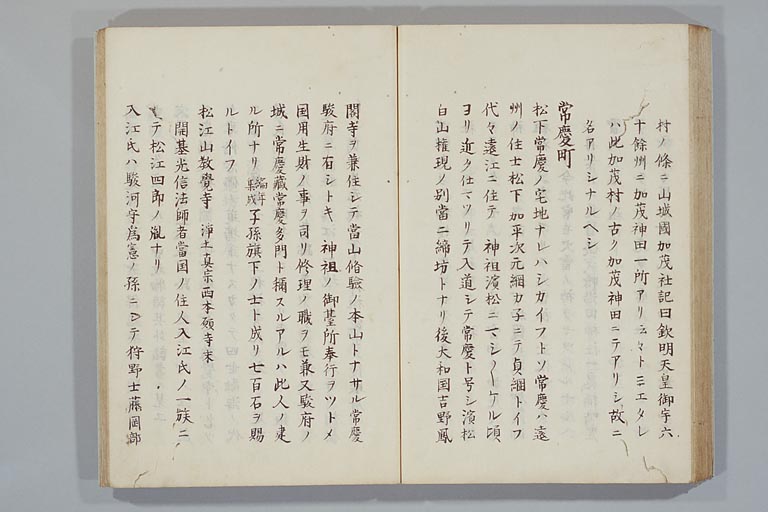 村ノ條ニ山城國加茂社記曰欽明天皇御宇六
十餘州ニ加茂神田一所アリ云々トミエタレ
ハ此加茂村ノ古ク加茂神田ニテアリシ故ニ
名アリシナルヘシ
常慶町
松下常慶ノ宅地ナレハシカイフトソ常慶ハ遠
州ノ住士松下加平次元綱カ子ニテ貞綱トイフ
代々遠江ニ住テ 神祖濱松ニマシ〱ケル頃
ヨリ近ク仕マツリテ入道シテ常慶ト号シ濱松
白山権現ノ別當二締坊トナリ後大和国吉野鳳
閣寺ヲ兼住シテ當山修驗ノ本山トナサル常慶
駿府ニ召シトキ 神祖ノ御䑓所奉行ヲツトメ
国用生財ノ事ヲ司リ修理ノ職ヲモ兼又駿府ノ
城ニ常慶藏常慶多門ト稱スルアルハ此人ノ建
ル所ナリ 子孫旗下ノ士ト成リ七百石ヲ賜
ルトイフ
松江山教覺寺 浄土真宗西本願寺末
開基光信法師者當国ノ住人入江氏ノ一族ニ
テ松江四郎ノ胤ナリ
入江氏ハ駿河守為憲ノ孫ニ〆テ狩野工藤岡部